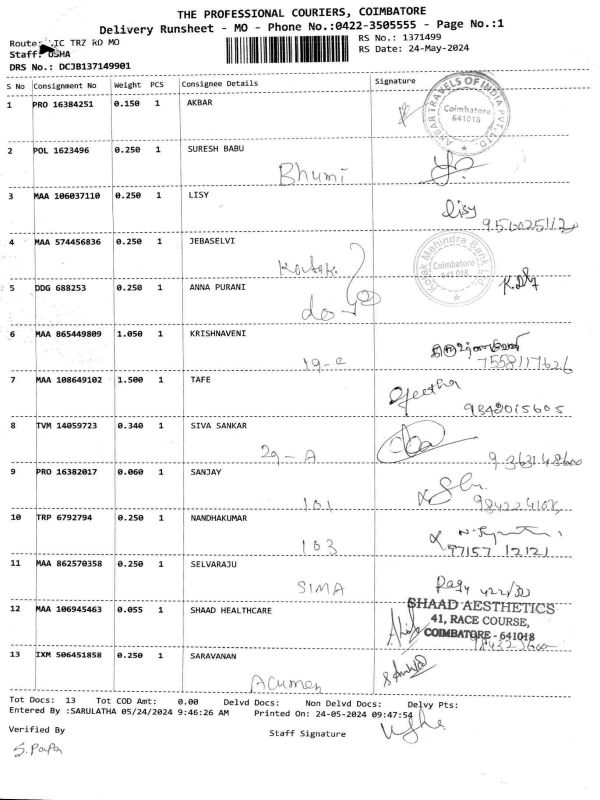 THE PROFESSIONAL COURIERS, COIMBATORE
Delivery Runsheet - MO - Phone No.:0422-3505555 - Page No.:1
Route: IC TRZ RD MO
RS No.: 1371499
Staff: USHA
RS Date: 24-May-2024
DRS No.: DCJB137149901
S No Consignment No Weight PCS Consignee Details Signature
1 PRO 16384251 0.150 1 AKBAR
AKBAR TRAVELS OF INDIA PVT. LTD.
Coimbatore
641018
2 POL 1623496 0.250 1 SURESH BABU
Bhumi
3 MAA 106037110 0.250 1 LISY
Lisy
4 MAA 574456836 0.250 1 JEBASELVI
Kotak
Kotak Mahindra Bank Ltd
Coimbatore
641 018
5 DDG 688253 0.250 1 ANNA PURANI
do
6 MAA 865449809 1.050 1 KRISHNAVENI
19-e
7558117626
7 MAA 108649102 1.500 1 TAFE
Geetha
9842015605
8 TVM 14059723 0.340 1 SIVA SANKAR
29-A
9 PRO 16382017 0.060 1 SANJAY
101
10 TRP 6792794 0.250 1 NANDHAKUMAR
103
97157 12121
11 MAA 862570358 0.250 1 SELVARAJU
SIMA
12 MAA 106945463 0.055 1 SHAAD HEALTHCARE
SHAAD AESTHETICS
41, RACE COURSE,
COIMBATORE - 641018
13 IXM 506451858 0.250 1 SARAVANAN
Acumen
Tot Docs: 13 Tot COD Amt: 0.00 Delvd Docs: Non Delvd Docs: Delvy Pts:
Entered By :SARULATHA 05/24/2024 9:46:26 AM Printed On: 24-05-2024 09:47:54
Verified By
Staff Signature
S. Papa